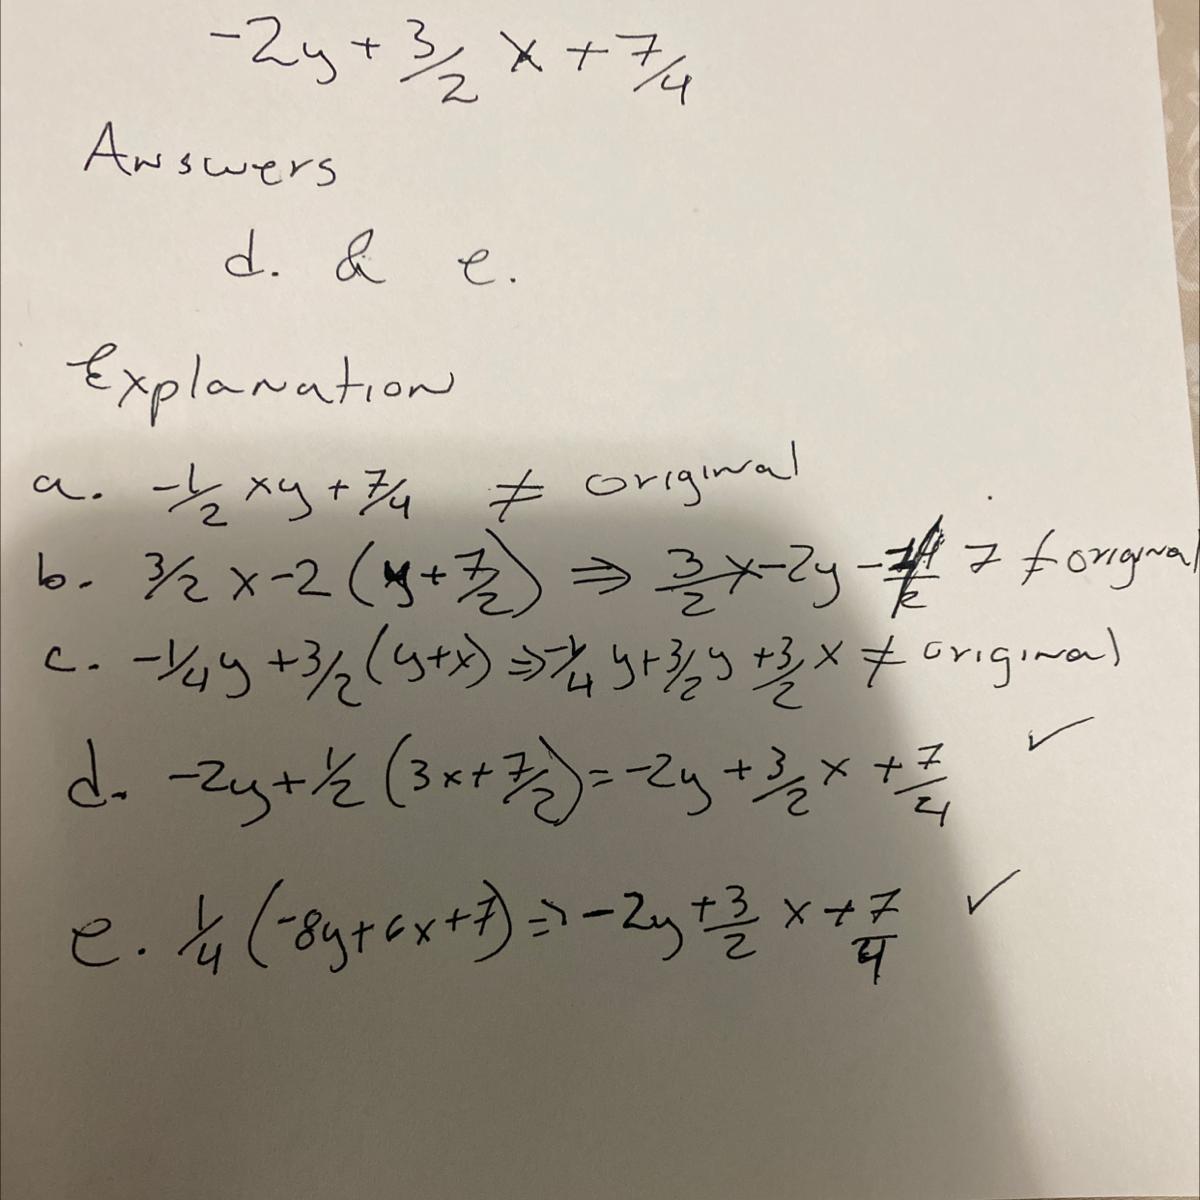 -2y + 3/2 x + 7/4
Answers
d. & e.
Explanation
a. -1/2 xy + 7/4 ≠ original
b. 3/2 x - 2 (y + 7/2) ⇒ 3/2 x - 2y - 7 ≠ original
c. -1/4 y + 3/2 (y+x) ⇒ -1/4 y + 3/2 y + 3/2 x ≠ original
d. -2y + 1/2 (3x + 7/2) = -2y + 3/2 x + 7/4 ✓
e. 1/4 (-8y + 6x + 7) ⇒ -2y + 3/2 x + 7/4 ✓